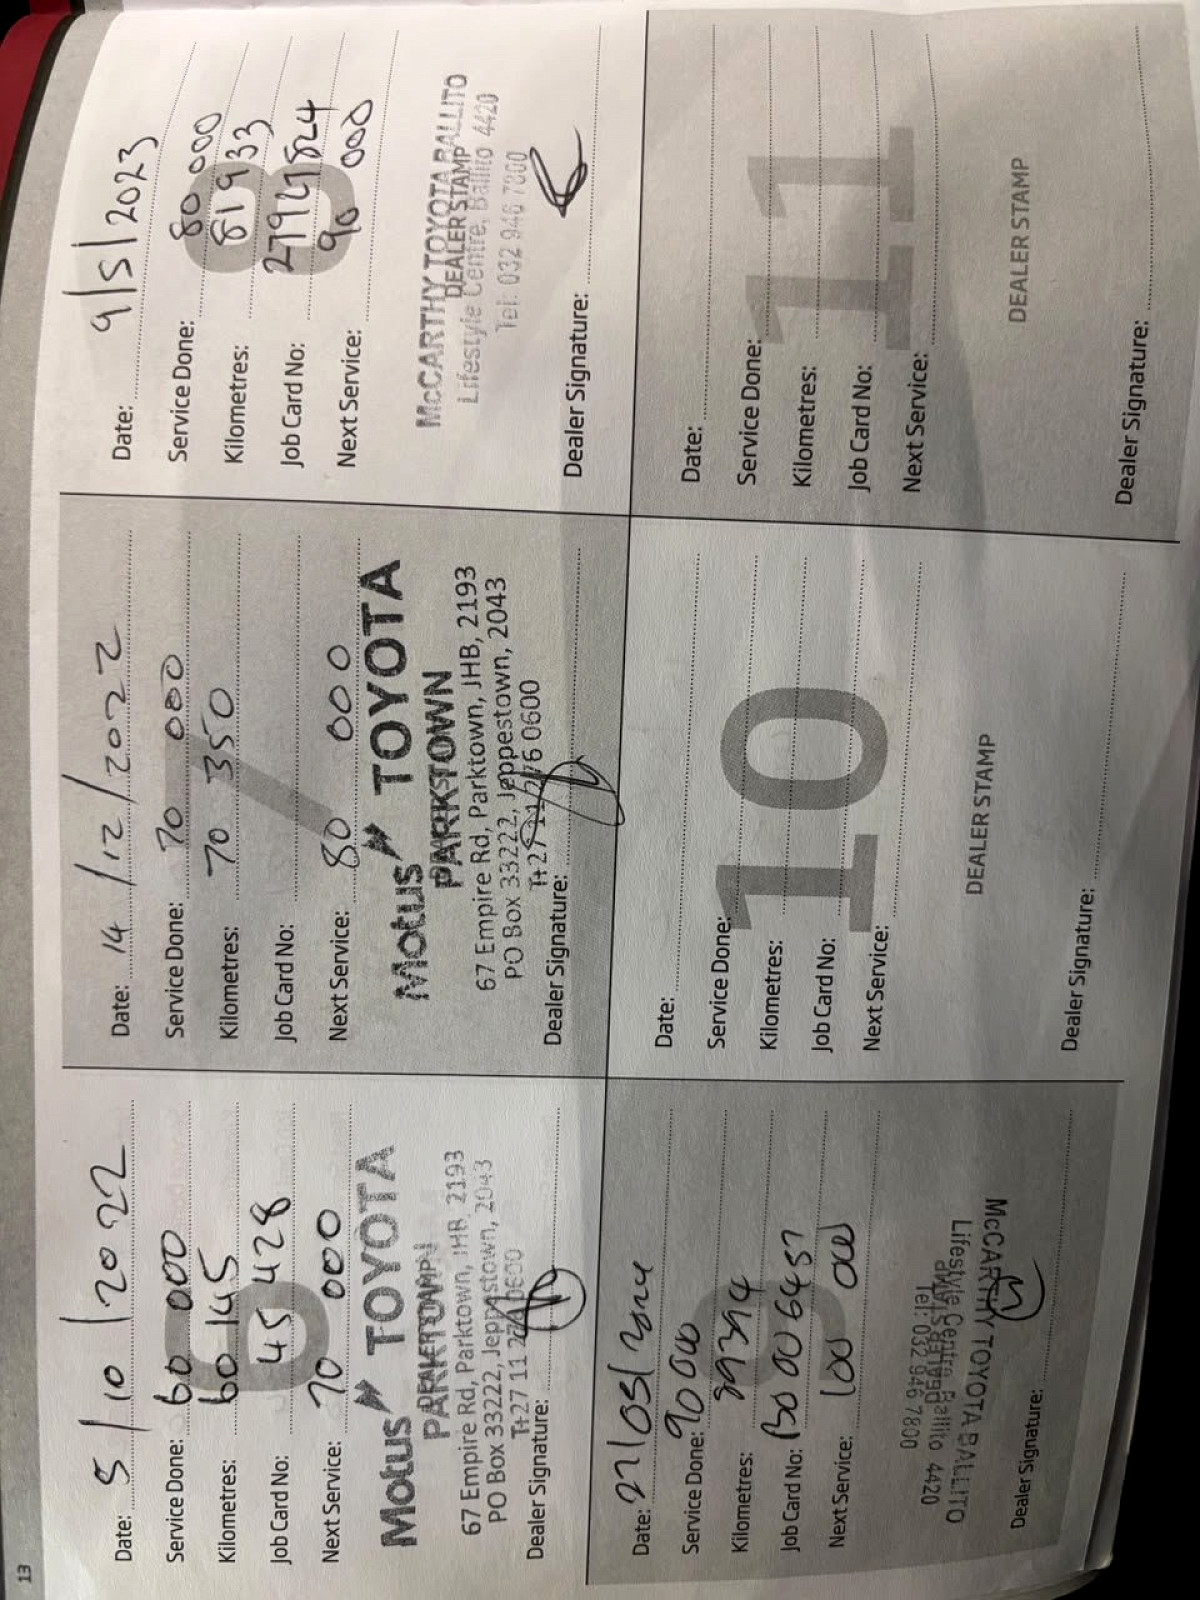 13
Date: 5/10/2022
Service Done: 60 000
Kilometres: 60 145
Job Card No: 45 428
Next Service: 70 000
6
Motus TOYOTA
PARKTOWN
67 Empire Rd, Parktown, JHB, 2193
PO Box 33222, Jeppestown, 2043
Dealer Signature:
Date: 14/12/2022
Service Done: 70 000
Kilometres: 70 350
Job Card No:
Next Service: 80 000
7
Motus TOYOTA
PARKTOWN
67 Empire Rd, Parktown, JHB, 2193
PO Box 33222, Jeppestown, 2043
T+27 11 276 0600
Dealer Signature:
Date: 9/5/2023
Service Done: 80 000
Kilometres: 81933
Job Card No:
Next Service: 90 000
8
McCARTHY TOYOTA BALLITO
DEALER STAMP
Lifestyle Centre, Ballito 4420
Tel: 032 946 7800
Dealer Signature:
Date:
Service Done: 90 000
Kilometres: 89394
Job Card No:
Next Service: 100 000
9
McCARTHY TOYOTA BALLITO
Lifestyle Centre Ballito 4420
DEALER STAMP
Tel: 032 946 7800
Dealer Signature:
Date:
Service Done:
Kilometres:
Job Card No:
Next Service:
10
DEALER STAMP
Dealer Signature:
Date:
Service Done:
Kilometres:
Job Card No:
Next Service:
11
DEALER STAMP
Dealer Signature: